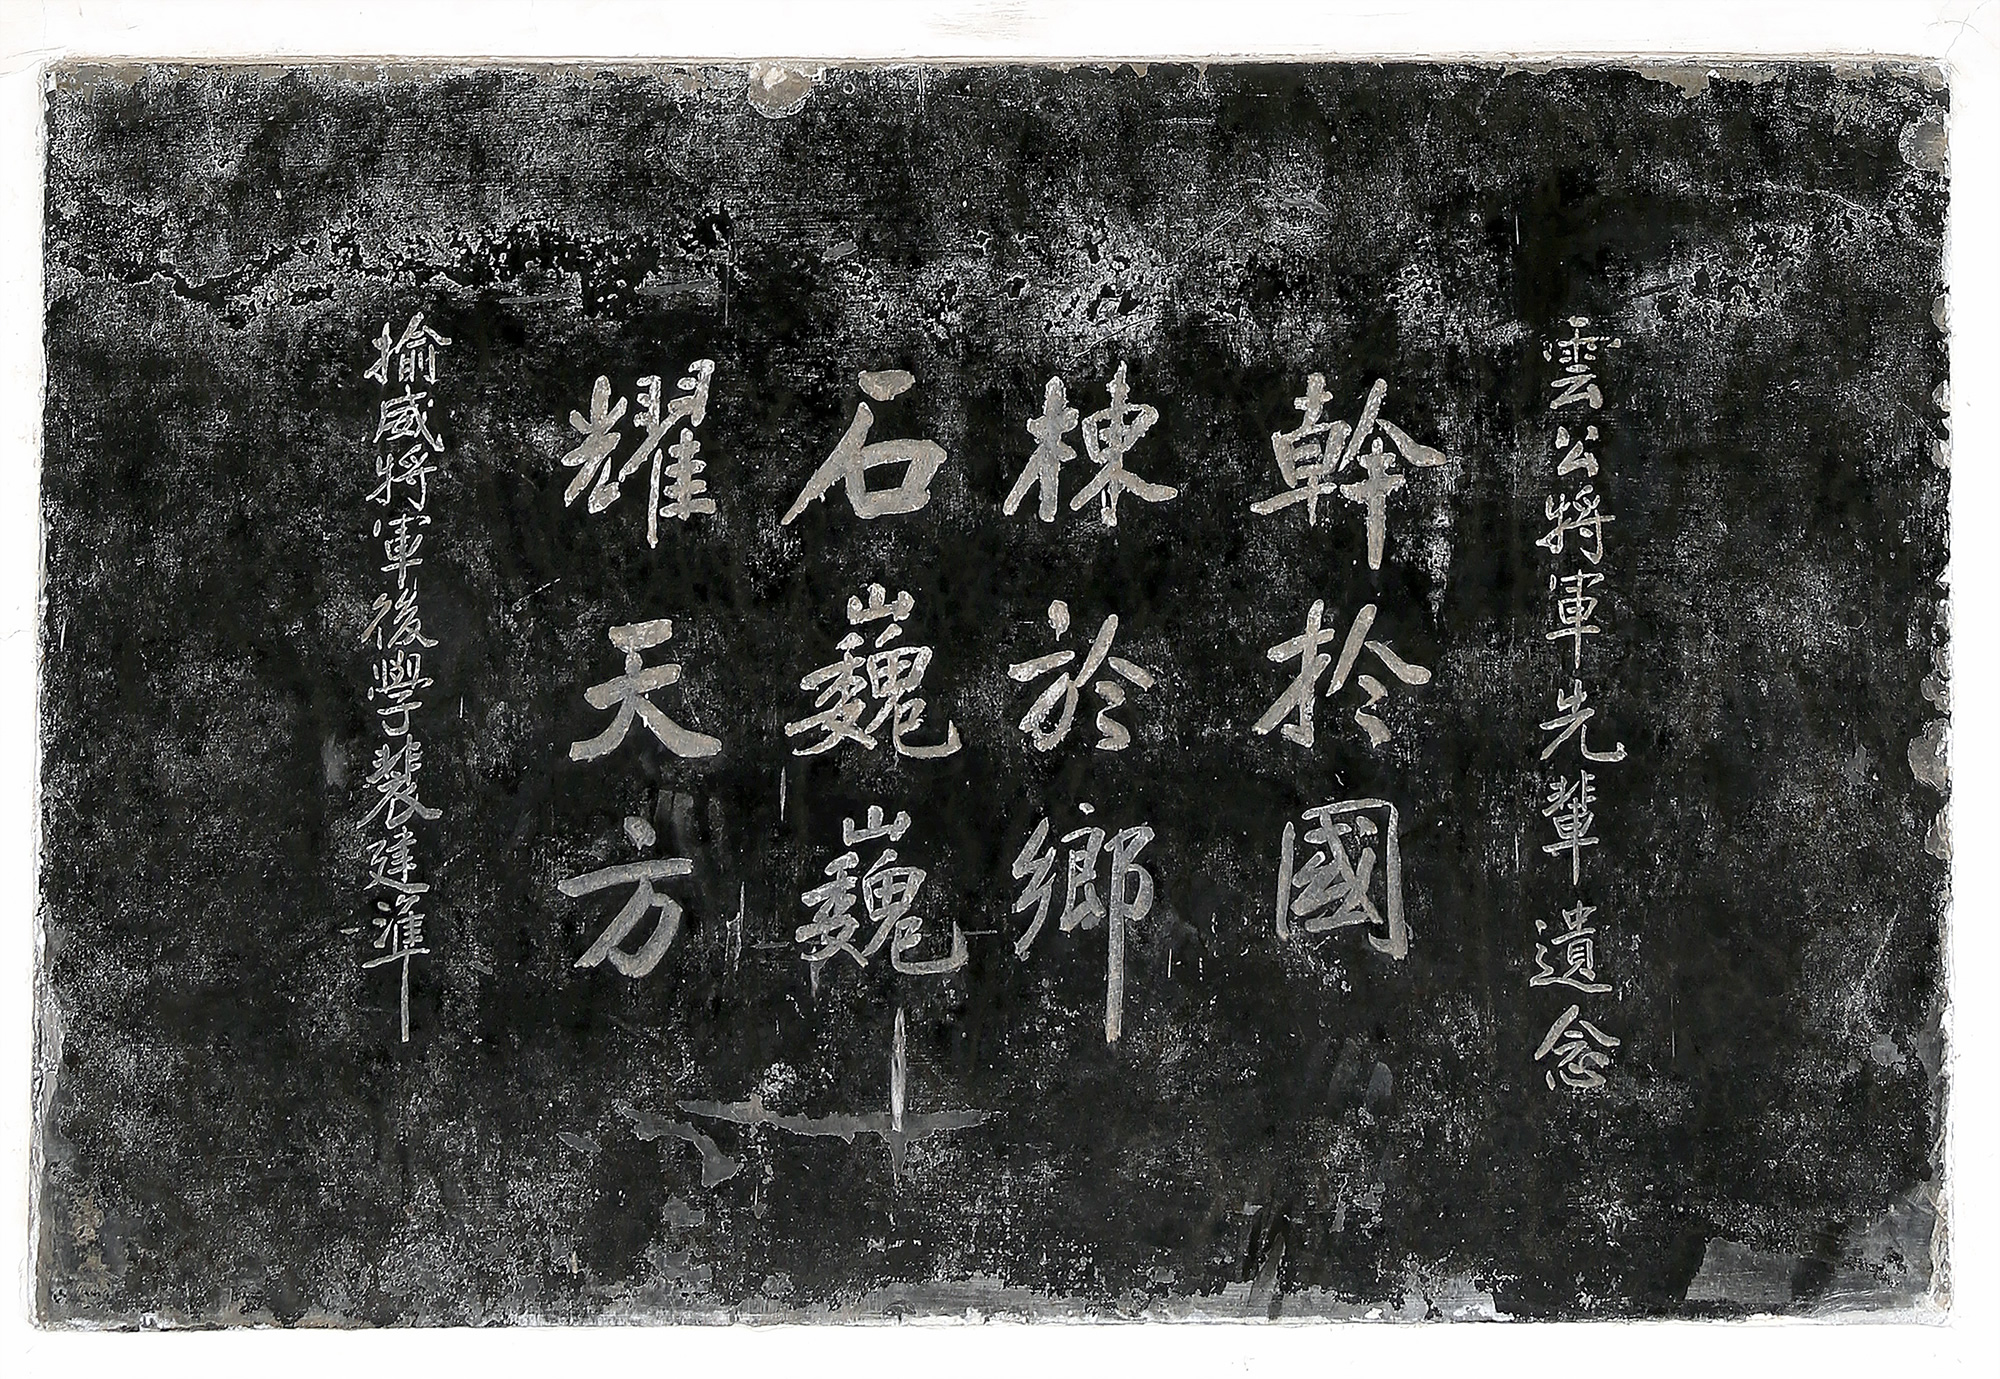 雲公將軍先輩遺念
幹於國
棟於鄉
石巍巍
耀天方
揄威將軍後學裴建準